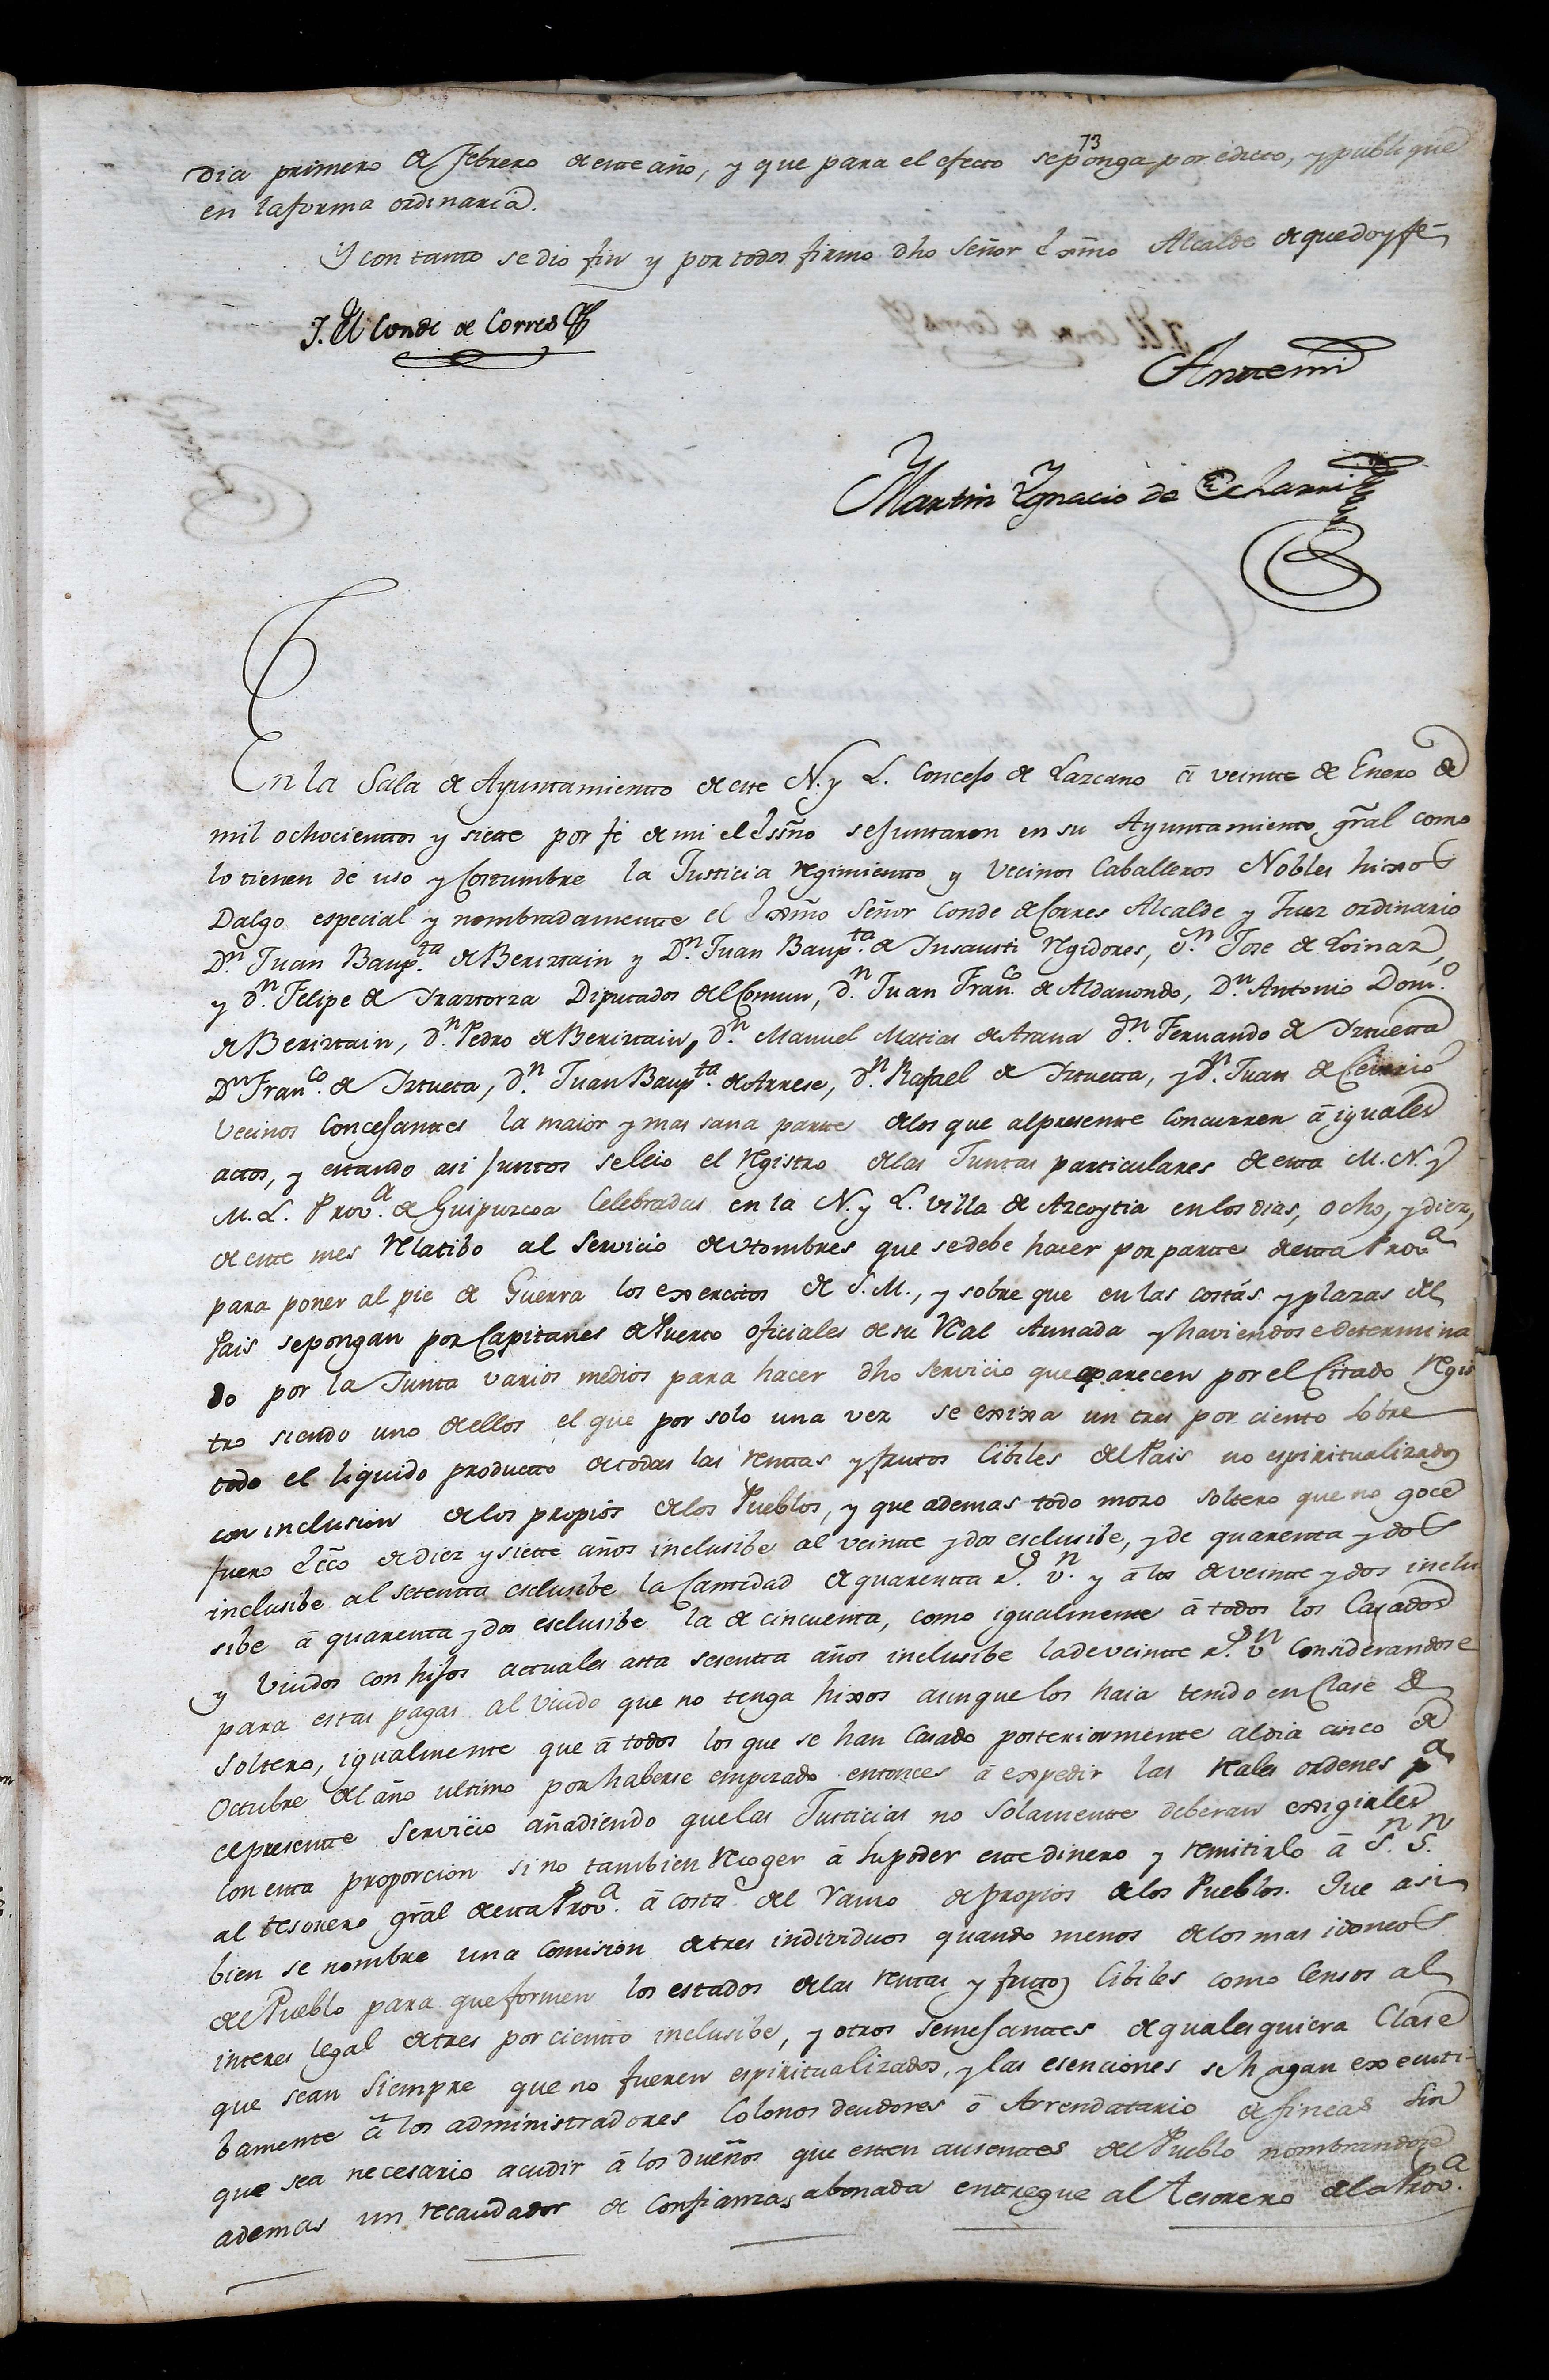 73
dia primero de Febrero de este año, y que para el efecto se ponga por edicto, y publique
en la forma ordinaria.
Y con tanto se dio fin y por todos firmo dho Señor Exmo Alcalde de que doy fe
J. El Conde de Corres
Antemi
Martin Ygnacio de Echarri
En la Sala de Ayuntamiento de este N. y L. Concejo de Lazcano á veinte de Enero de
mil ochocientos y siette por fé de mi el Essno se juntaron en su Ayuntamiento gral como
lo tienen de uso y Costumbre la Justicia regimiento y Vecinos Caballeros Nobles hixos
Dalgo especial y nombradamente el Exmo Señor Conde de Corres Alcalde y Juez ordinario
Dn. Juan Baupta. de Beriztain y Dn. Juan Baupta. de Insausti Regidores, dn. Jose de Loinaz,
y dn. Felipe de Yraztorza Diputados del Comun, dn. Juan Franco. de Aldanondo, Dn. Antonio Domo.
de Beriztain, dn. Pedro de Beriztain, dn. Manuel Matias de Arana dn. Fernando de Yztuetta
Dn Franco. de Yztueta, dn. Juan Baupta. de Arrese, dn. Rafael de Yztuetta, y dn. Juan de
Vecinos Concejantes la maior y mas sana partte de los que al presente Concurren á iguales
actos, y estando asi juntos se leio el Registro de las Juntas particulares de esta M. N. y
M. L. Prova. de Guipuzcoa Celebradas en la N. y L. villa de Azcoytia en los dias, ocho, y diez,
de este mes Relatibo al Servicio de Hombres que se debe hacer por partte de esta Prova
para poner al pie de Guerra los exercitos de S. M., y sobre que en las costas y plazas del
Pais se pongan por Capitanes de Puerto oficiales de su Real Armada y haviendose determina
do por la Junta varios medios para hacer dho servicio que aparecen por el Citado Regis
tro siendo uno de ellos el que por solo una vez se exixa un tres por ciento sobre
todo el liquido productto de todas las rentas y frutos Cibiles del Pais no espiritualizados
con inclusion de los propios de los Pueblos, y que ademas todo mozo soltero que no goce
fuero Ecco de diez y siette años inclusibe al veintte y dos esclusibe, y de quarenta y dos
inclusibe al setentta esclusibe la Cantidad de quarentta rs. vn. y á los de veintte y dos inclu
sibe á quarenta y dos esclusibe la de cincuenta, como igualmente á todos los Casados
y Viudos con hijos actuales asta sesentta años inclusibe la de veintte rs. vn Considerandose
para estas pagas al Viudo que no tenga hixos aunque los haia tenido en Clase de
Soltero, igualmente que á todos los que se han Casado posteriormente al dia cinco de
Octubre del año ultimo por haberse empezado entonces á expedir las Reales ordenes pa
el presente Servicio añadiendo que las Justicias no Solamente deberan exigirles
con esta proporcion sino tambien Recoger á su poder este dinero y remitirlo á Sn. Sn.
al tesorero gral de esta Prova. á costa del ramo de propios de los Pueblos. Que asi
bien se nombre una Comision de tres individuos quando menos de los mas idoneos
del Pueblo para que formen los estados de las rentas y frutos Cibiles como Censos al
interes legal de tres por ciento inclusibe, y otros semejantes de qualesquiera Clase
que sean Siempre que no fueren espiritualizados, y las esenciones se hagan executi-
bamente á los administradores Colonos deudores ó Arrendatario de fincas sin
que sea necesario acudir á los dueños que esten ausentes del Pueblo nombrandose
ademas un recaudador de Confianzas abonada entregue al tesorero de la Prova.